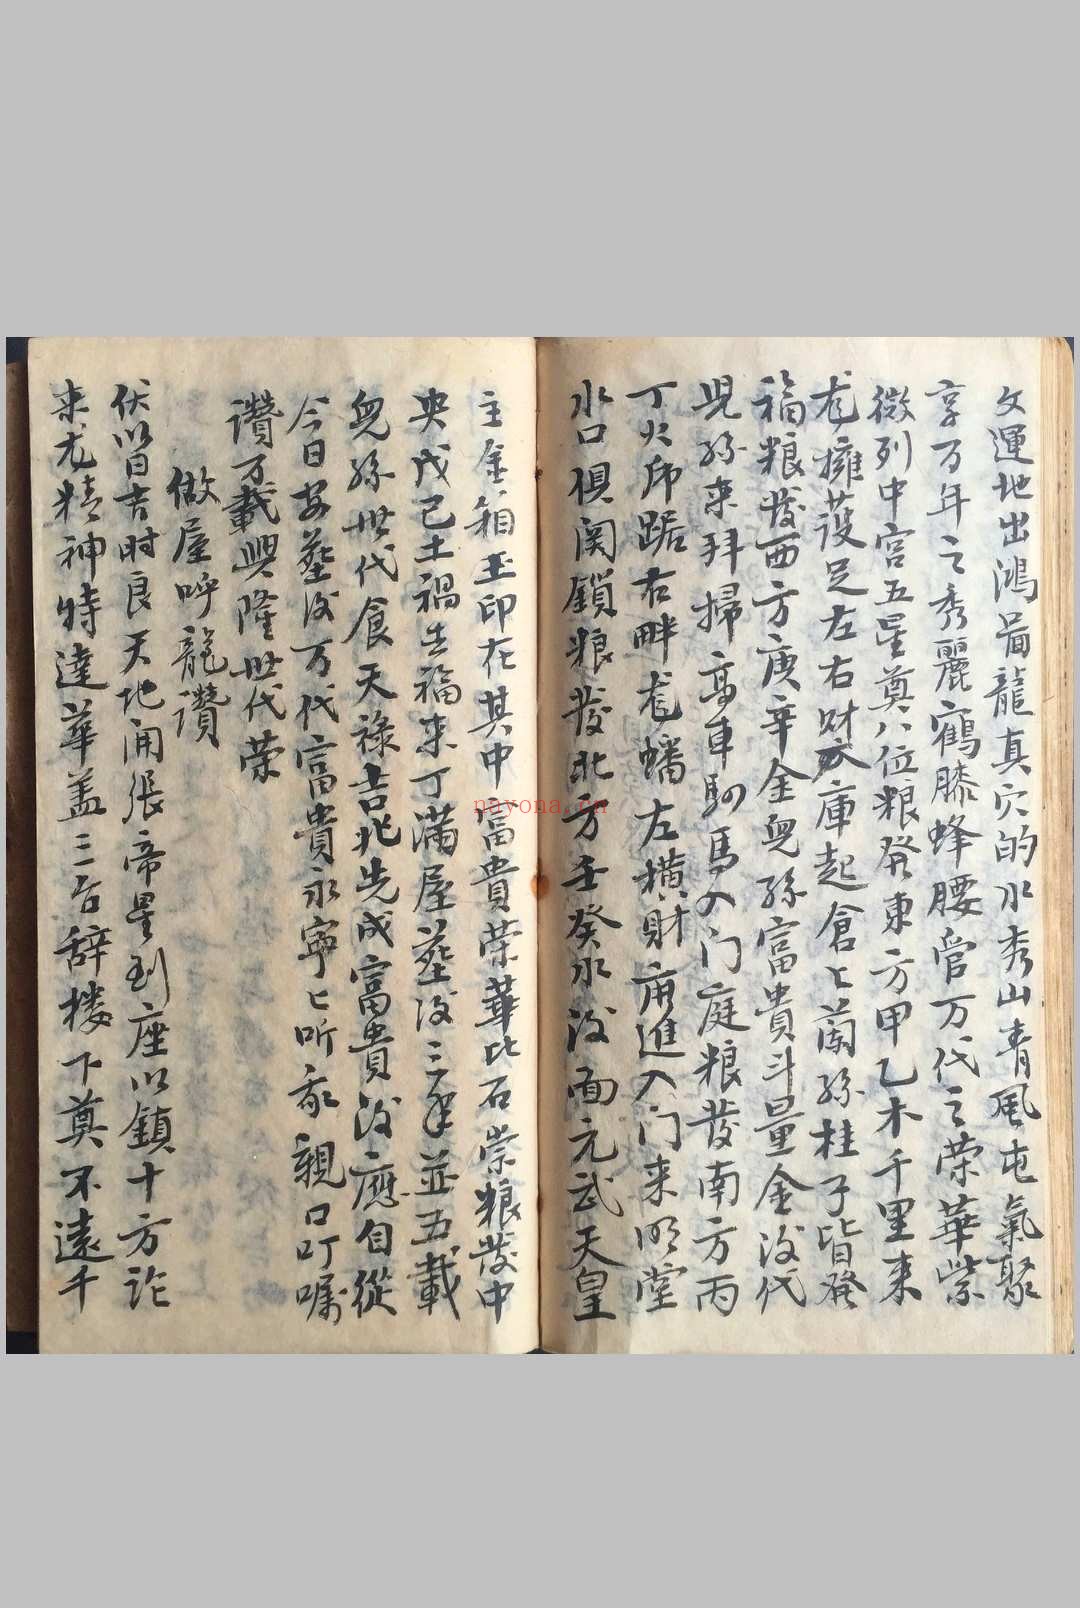 文運地出鴻啚龍真穴的水秀山青風屯氣聚
享万年之秀麗鶴膝蜂腰官万代之荣華紫
微列中宫五星奠八位粮癸東方甲乙木千里来
龙擁護足左右财库起倉仓蘭孫桂子皆癸
福粮發西方庚辛金兒孫富貴斗量金后代
児孫来拜掃高車駟馬入门庭粮發南方丙
丁火印踞右畔龙蟠左横財庫進入门来明堂
水口俱関鎖粮發北方壬癸水後面元武天皇
主金箱玉印在其中富貴荣華比石崇粮發中
央戊己土禍去福来丁满屋塟後三年並五載
兒孫世代食天禄吉兆先成富貴後應自從
今日安塟後万代富貴永寧寧听我親口叮嘱
讚万載興隆世代荣
做屋呼龍讚
伏以日吉时良天地開張帝星到座以鎮十方
来龙精神特達華盖三台辞楼下奠不遠千
nayona.cn